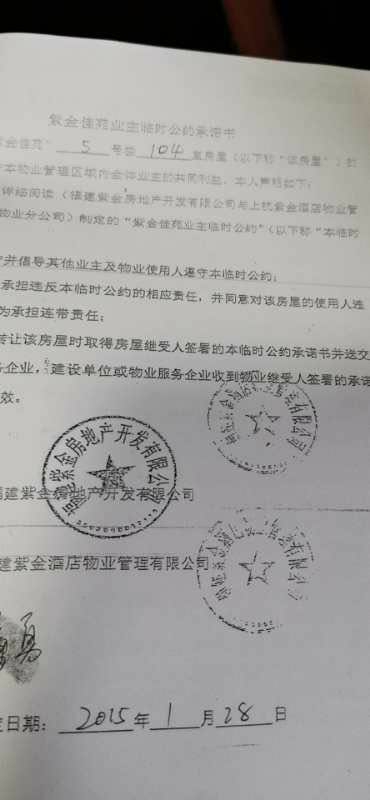 紫金佳苑业主临时公约承诺书
金佳苑” 5 号楼 104 室房屋（以下称“该房屋”）的
本物业管理区域内全体业主的共同利益，本人声明如下：
详细阅读（福建紫金房地产开发有限公司与上杭紫金酒店物业管
物业分公司）制定的“紫金佳苑业主临时公约”（以下称“本临时
并倡导其他业主及物业使用人遵守本临时公约；
承担违反本临时公约的相应责任，并同意对该房屋的使用人违
为承担连带责任；
转让该房屋时取得房屋继受人签署的本临时公约承诺书并送交
务企业，建设单位或物业服务企业收到物业继受人签署的承诺
效。
福建紫金房地产开发有限公司
福建紫金房地产开发有限公司
建紫金酒店物业管理有限公司
定日期：2015年1月28日